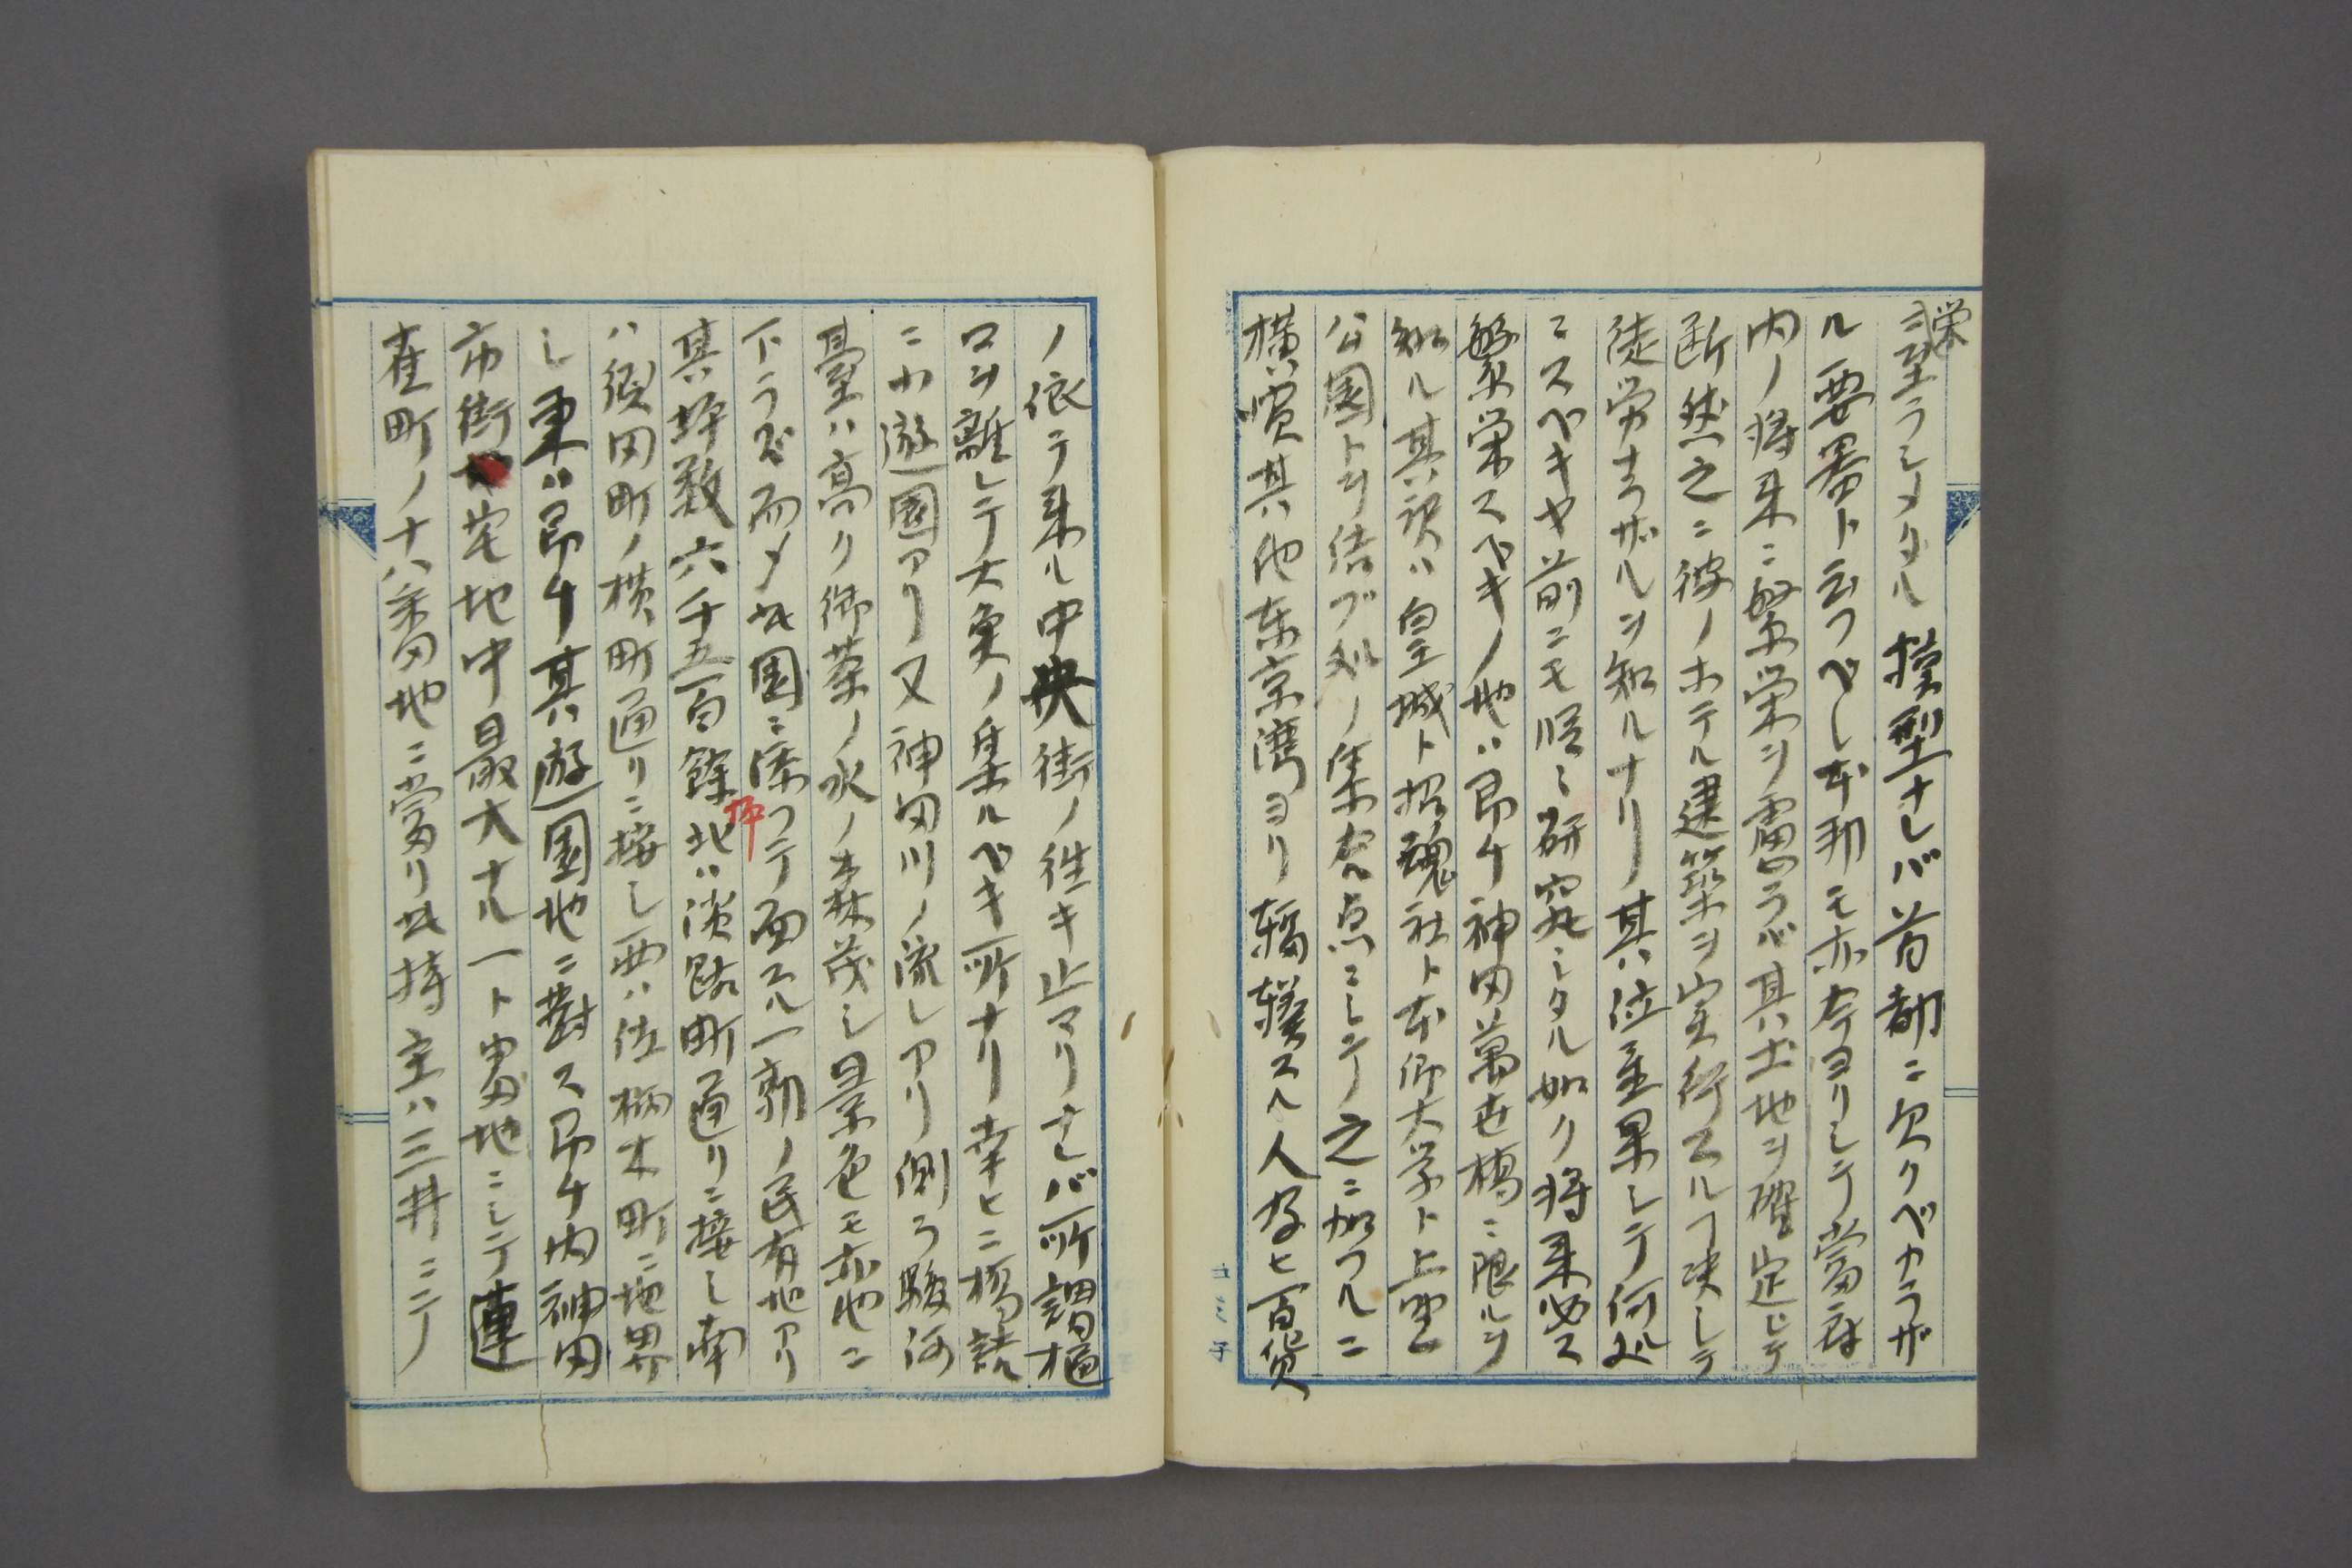 栄
ニ至ラシメタル模型ナレバ首都ニ欠クベカラザ
ル要器ト云フベシ本邦モ亦今ヨリシテ當府
内ノ将来ニ繁栄ヲ慮ラバ其ハ土地ヲ確定シテ
断然之ニ彼ノホテル建築ヲ実行スルヿ決シテ
徒労ナラザルヲ知ルナリ其ハ位置果シテ何処
ニスベキヤ前ニモ縷ミ研究シタル如ク将来必ス
繁栄スベキノ地ハ即チ神田萬世橋ニ限ルヲ
知ル其ハ訳ハ皇城ト招魂社ト本郷大学ト上野
公園トヲ結ブ処ノ集合点ニシテ之ニ加フルニ
横濱其ハ他東京湾ヨリ輻輳スル人及ヒ百貨
ノ依テ来ル中央街ノ往キ止マリナレバ所謂樞
ロヲ離レテ大魚ノ集ルベキ所ナリ幸ヒニ橋詰
ニ小遊園アリ又神田川ノ流レアリ側ラ駿河
臺ハ高ク御茶ノ水ノ森茂シ景色モ亦他ニ
下ラズ而〆此園ニ添フテ面スル一廓ノ民有地アリ
其ハ坪数六千五百餘坪北ハ淡路町通リニ接シ南
ハ須田町ノ横町通リニ接シ西ハ佐柄木町ニ地界
シ東ハ即チ其ハ遊園地ニ對ス即チ内神田
市街宅地中最大ナル一ト曲輪地ニシテ連
雀町ノ十八番地ニ當リ此持主ハ三井ニテ